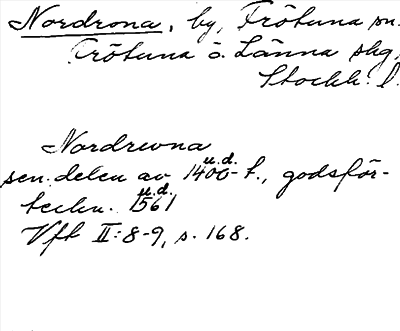 Nordrona, by, Frötuna sn.
Frötuna o. Länna skg,
Stockh. l.
Nordrevna
sen. delen av 1400-t., godsför-
u.d.
teckn. 1561
u.d.
Vft II:8-9, s. 168.